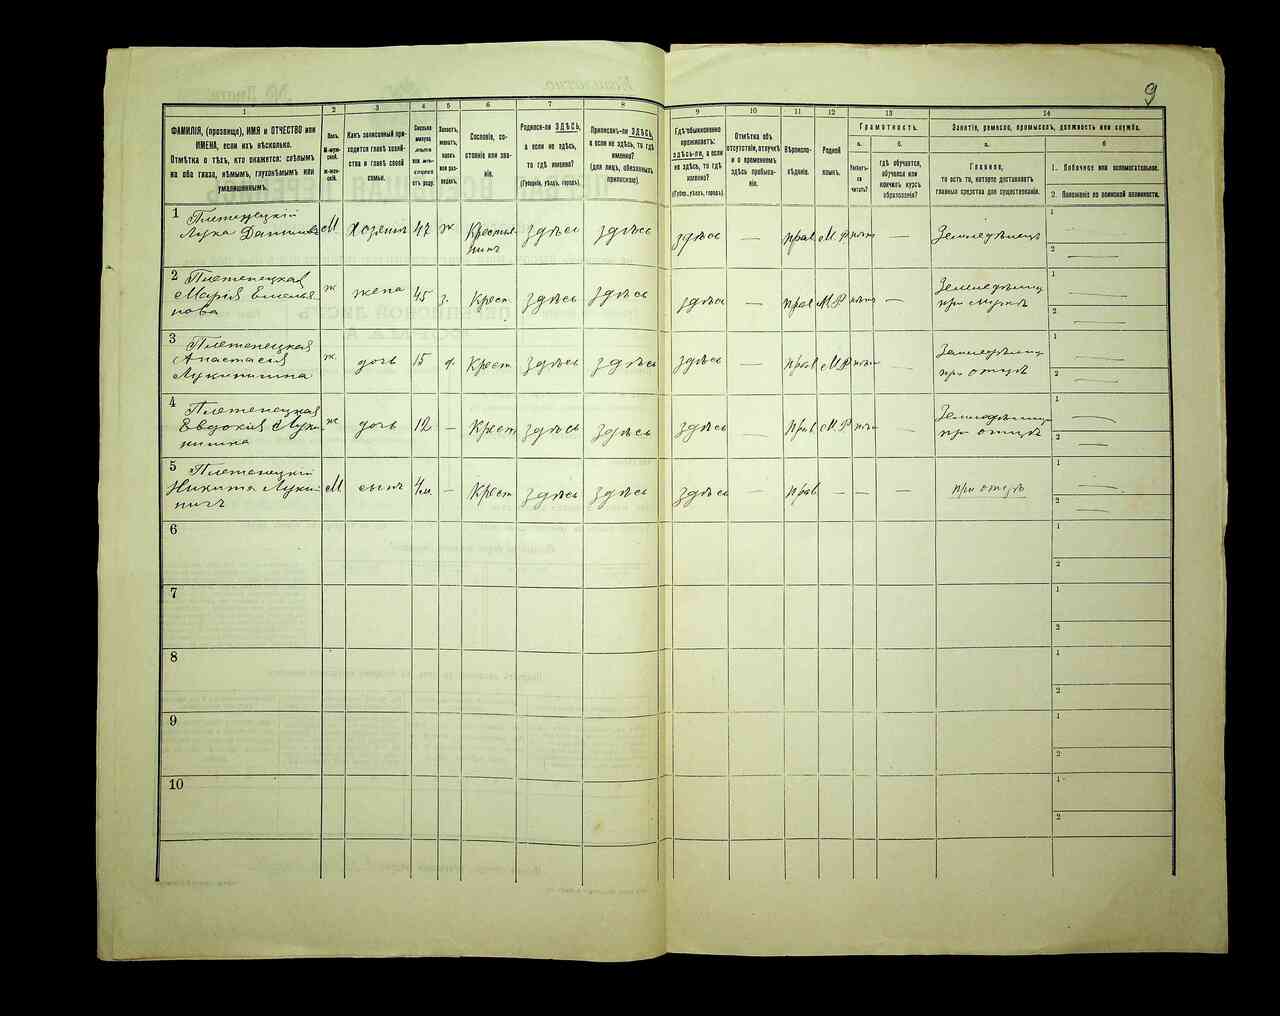 9
1
2
3
4
5
6
7
8
9
10
11
12
13
14
ФАМИЛІЯ, (прозвище), ИМЯ и ОТЧЕСТВО или
ИМЕНА, если ихъ нѣсколько.
Отмѣтка о тѣхъ, кто окажется: слѣпымъ
на оба глаза, нѣмымъ, глухонѣмымъ или
умалишеннымъ.
Полъ.
М-муж-
ской.
Ж-жен-
скій.
Какъ записанный при-
ходится главѣ хозяй-
ства и главѣ своей
семьи.
Сколько
минуло
лѣтъ
отъ роду.
Холостъ,
женатъ,
вдовъ
или раз-
веденъ.
Сословіе, со-
стояніе или зва-
ніе.
Родился-ли ЗДѢСЬ,
а если не здѣсь,
то гдѣ именно?
(Губернія, уѣздъ, городъ).
Приписанъ-ли ЗДѢСЬ,
а если не здѣсь, то гдѣ
именно?
(для лицъ, обязанныхъ
припискою).
Гдѣ обыкновенно
проживаетъ:
здѣсь-ли, а если
не здѣсь, то гдѣ
именно?
(Губер., уѣздъ, городъ).
Отмѣтка объ
отсутствіи, отлучкѣ
и о временномъ
здѣсь пребыва-
ніи.
Вѣроиспо-
вѣданіе.
Родной
языкъ.
Грамотность.
а.
б.
Умѣетъ-
ли
читать?
гдѣ обучается,
обучался или
кончилъ курсъ
образованія?
Занятіе, ремесло, промыселъ, должность или служба.
а.
б
Главное,
то есть то, которое доставляетъ
главныя средства для существованія.
1. Побочное или вспомогательное.
2. Положеніе по воинской повинности.
1 Плетенецкій
Лука Данилов
М
Хозяинъ
47
ж
Крестья-
нинъ
здѣсь
здѣсь
здѣсь
—
прав
М. Р
—
Земледѣлецъ
1
2 —
2 Плетенецкая
Марія Емелья-
нова
ж
жена
45
з.
Крест.
здѣсь
здѣсь
здѣсь
—
прав
М Р
—
Земледѣлец
при мужѣ
1
2 —
3 Плетенецкая
Анастасія
Лукинишна
ж.
дочь
15
д.
Крест
здѣсь
здѣсь
здѣсь
—
прав
М Р
—
Земледѣлец
при отцѣ
1 —
2 —
4 Плетенецкая
Евдокія Луки-
нишна
ж
дочь
12
—
Крест.
здѣсь
здѣсь
здѣсь
—
прав
М. Р
—
Земледѣлец
при отцѣ
1 —
2 —
5 Плетенецкій
Никита Луки-
ничъ
М
сынъ
4м.
—
Крест
здѣсь
здѣсь
здѣсь
—
прав
—
—
при отцѣ
1 —
2 —
6
1
2
7
1
2
8
1
2
9
1
2
10
1
2